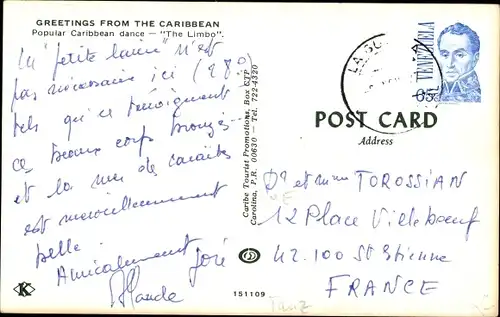 GREETINGS FROM THE CARIBBEAN
Popular Caribbean dance — "The Limbo".
La "petite laine" n'est
pas nécessaire ici (28°)
tels qu'en témoignent
ces beaux corps bronzés
et la mer des caraïbes
est merveilleusement
belle.
Amicalement José
Claude
Caribe Tourist Promotions, Box ETP
Carolina, P.R. 00630 - Tel. 722-4320
VENEZUELA
POST CARD
Address
Dr et mme TOROSSIAN
12 Place Villeboeuf
42.100 St Etienne
FRANCE
K
151109